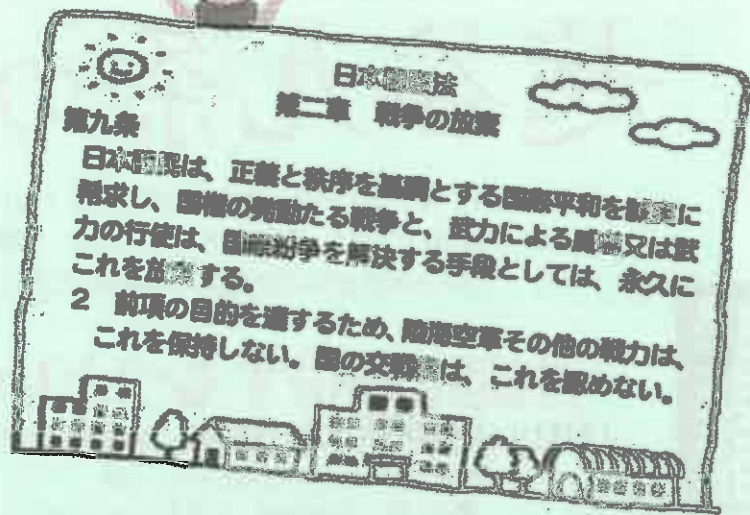 日本国憲法
第二章 戦争の放棄
第九条
日本国民は、正義と秩序を基調とする国際平和を誠実に
希求し、国権の発動たる戦争と、武力による威嚇又は武
力の行使は、国際紛争を解決する手段としては、永久に
これを放棄する。
2 前項の目的を達するため、陸海空軍その他の戦力は、
これを保持しない。国の交戦権は、これを認めない。